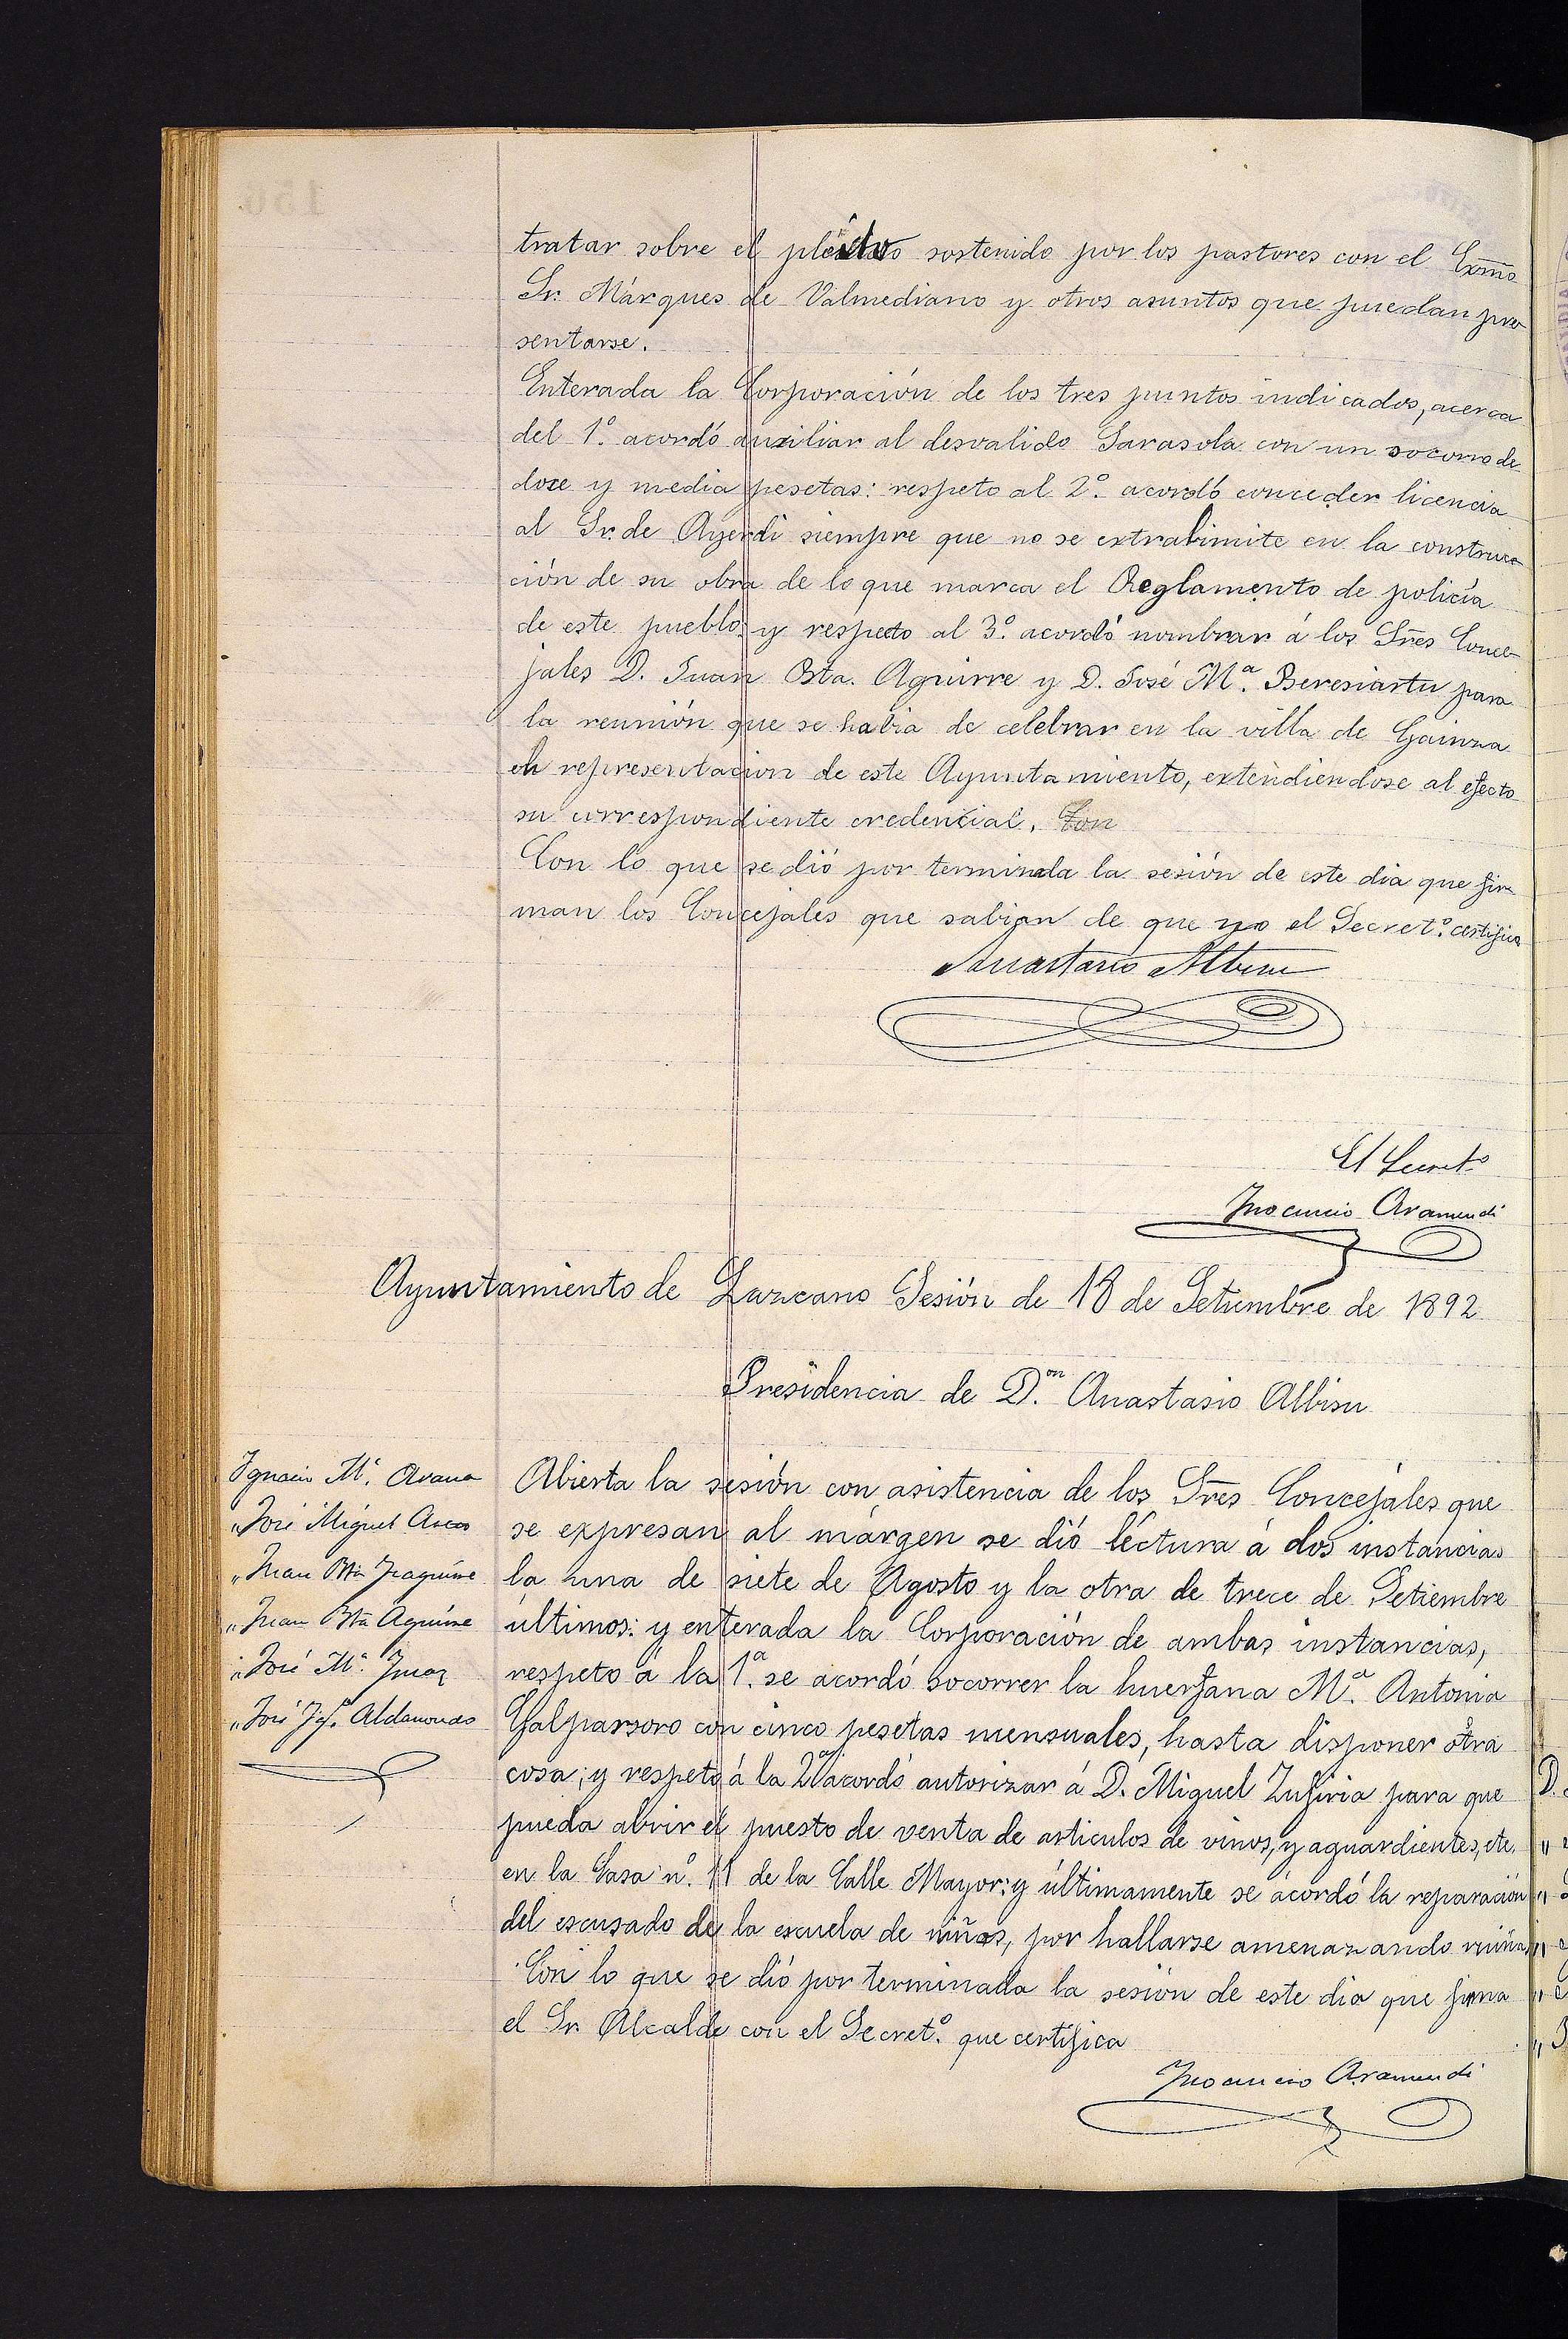 tratar sobre el pleito sostenido por los pastores con el Exmo
Sr. Márques de Valmediano y otros asuntos que puedan pre
sentarse.
Enterada la Corporación de los tres puntos indicados, acerca
del 1.º acordó auxiliar al desvalido Sarasola con un socorro de
doce y media pesetas: respeto al 2.º acordó conceder licencia
al Sr. de Ayerdi siempre que no se extralimite en la construc
ción de su obra de lo que marca el Reglamento de policía
de este pueblo: y respecto al 3.º acordó nombrar á los Sres Conce
jales D. Juan Bta. Aguirre y D. José M.ª Beresiartu para
la reunión que se habia de celebrar en la villa de Gainza
en representacion de este Ayuntamiento, extendiendose al efecto
su correspondiente credencial. Con
Con lo que se dió por terminada la sesión de este dia que fir
man los Concejales que sabian de que yo el Secret.º certifico
Anastasio Albisu
El Secret.º
Inocencio Aramendi
Ayuntamiento de Lazcano Sesión de 18 de Setiembre de 1892
Presidencia de D.on Anastasio Albisu
Ignacio M.ª Arana
„ José Miguel
„ Juan Bta
„ Juan Bta Aguirre
„ José M.ª
„ José Aldanondo
Abierta la sesión con asistencia de los Sres Concejales que
se expresan al márgen se dió léctura á dos instancias
la una de siete de Agosto y la otra de trece de Setiembre
últimos: y enterada la Corporación de ambas instancias,
respeto á la 1.ª se acordó socorrer la huerfana M.ª Antonia
Galparsoro con cinco pesetas mensuales, hasta disponer otra
cosa; y respeto á la 2ª acordó autorizar á D. Miguel Zufiria para que
pueda abrir el puesto de venta de articulos de vinos, y aguardientes, etc.
en la Casa n.º 11 de la Calle Mayor: y últimamente se acordó la reparación
del escusado de la escuela de niñas, por hallarse amenazando ruina.
Con lo que se dió por terminada la sesión de este dia que firma
el Sr. Alcalde con el Secret.º que certifica
Inocencio Aramendi